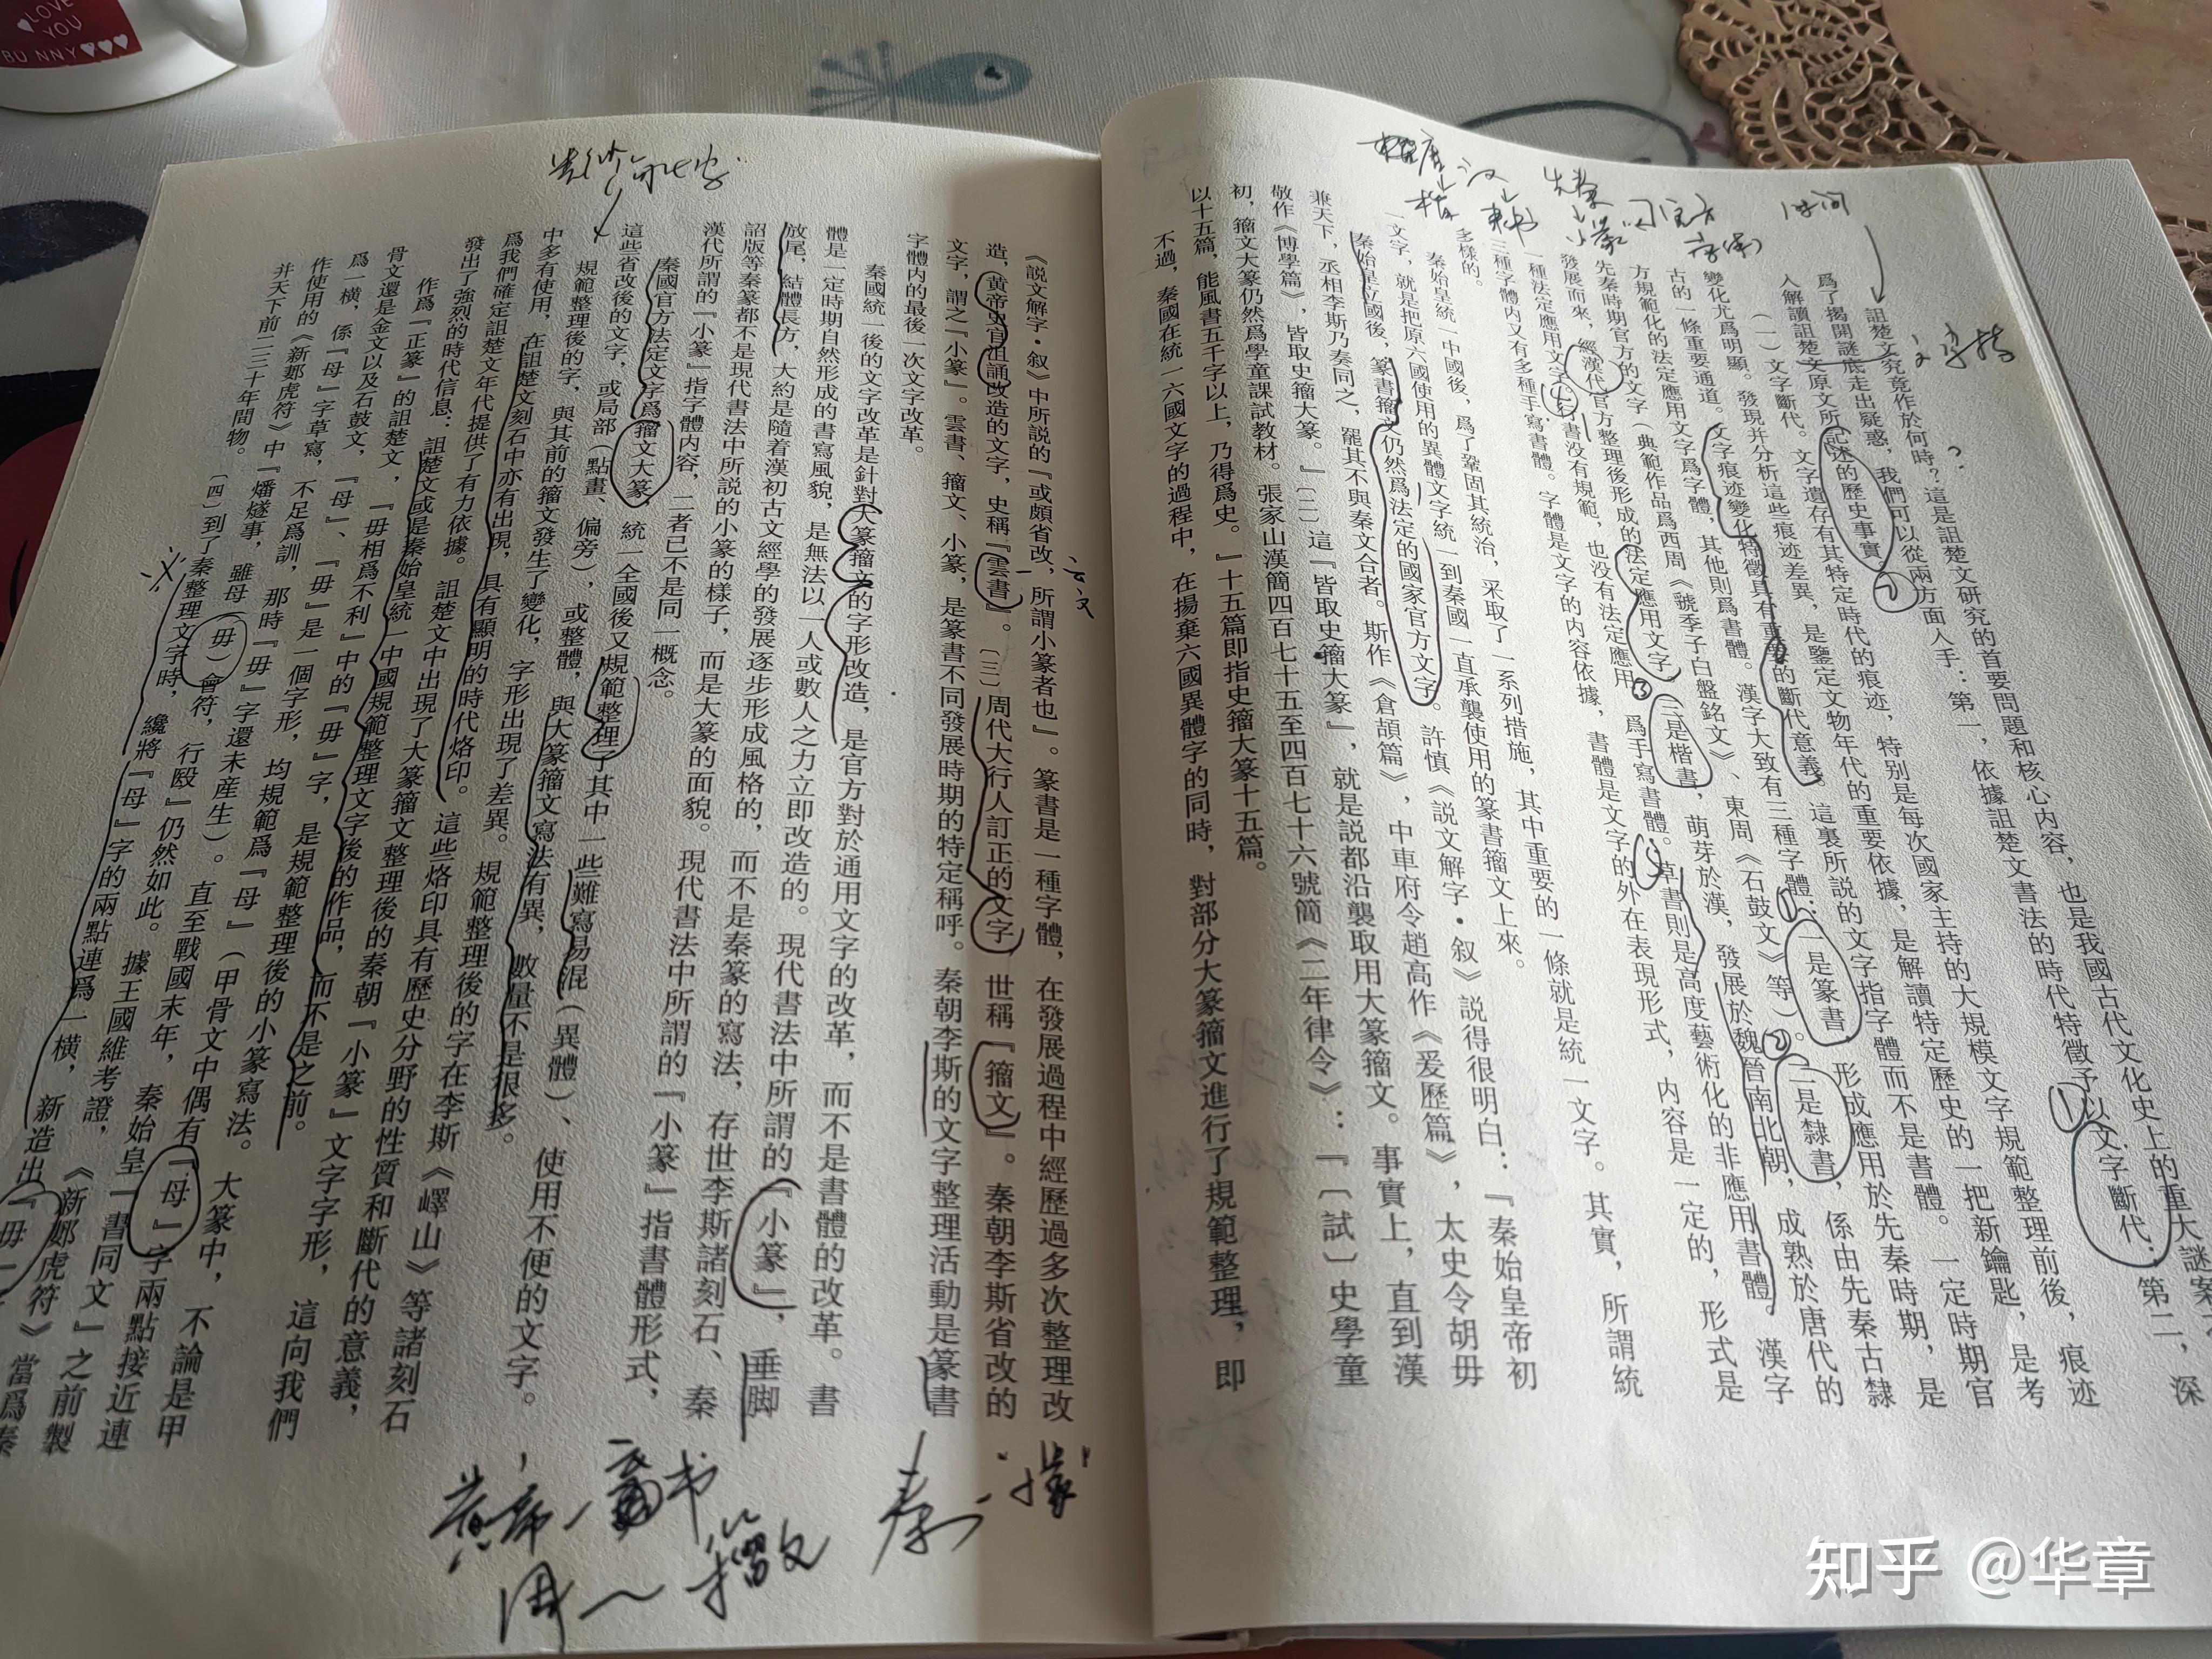 詛楚文究竟作於何時？這是詛楚文研究的首要問題和核心內容，也是我國古代文化史上的重大謎案
爲了揭開謎底走出疑惑，我們可以從兩方面入手：第一，依據詛楚文書法的時代特徵予以文字斷代；第二，深
入解讀詛楚文原文所記述的歷史事實。
（一）文字斷代。文字遺存有其特定時代的痕迹，特別是每次國家主持的大規模文字規範整理前後，痕迹
變化尤爲明顯。發現并分析這些痕迹差異，是鑒定文物年代的重要依據，是解讀特定歷史的一把新鑰匙，是考
古的一條重要通道。文字痕迹變化特徵具有重要的斷代意義。這裏所說的文字指字體而不是書體。一定時期官
方規範化的法定應用文字爲字體，其他則爲書體。漢字大致有三種字體：一是篆書，形成應用於先秦時期，是
先秦時期官方的文字（典範作品爲西周《虢季子白盤銘文》、東周《石鼓文》等）。二是隸書，係由先秦古隸
發展而來，經漢代官方整理後形成的法定應用文字。三是楷書，萌芽於漢，發展於魏晉南北朝，成熟於唐代的
一種法定應用文字。行書没有規範，也没有法定應用，爲手寫書體。草書則是高度藝術化的非應用書體。漢字
三種字體内又有多種手寫書體。字體是文字的内容依據，書體是文字的外在表現形式，内容是一定的，形式是
多樣的。
秦始皇統一中國後，爲了鞏固其統治，采取了一系列措施，其中重要的一條就是統一文字。其實，所謂統
一文字，就是把原六國使用的異體文字統一到秦國一直承襲使用的篆書籀文上來。
秦始皇立國後，篆書籀文仍然爲法定的國家官方文字。許慎《說文解字·叙》說得很明白：『秦始皇帝初
兼天下，丞相李斯乃奏同之，罷其不與秦文合者。斯作《倉頡篇》，中車府令趙高作《爰歷篇》，太史令胡毋
敬作《博學篇》，皆取史籀大篆。』〔一〕這『皆取史籀大篆』，就是說都沿襲取用大篆籀文。事實上，直到漢
初，籀文大篆仍然爲學童課試教材。張家山漢簡四百七十五至四百七十六號簡《二年律令》：『〔試〕史學童
以十五篇，能風書五千字以上，乃得爲史。』十五篇即指史籀大篆十五篇。
不過，秦國在統一六國文字的過程中，在揚棄六國異體字的同時，對部分大篆籀文進行了規範整理，即
《說文解字·叙》中所說的『或頗省改，所謂小篆者也』。篆書是一種字體，在發展過程中經歷過多次整理改
造，黄帝史官沮誦改造的文字，史稱『雲書』。〔三〕周代大行人訂正的文字，世稱『籀文』。秦朝李斯省改的
文字，謂之『小篆』。雲書、籀文、小篆，是篆書不同發展時期的特定稱呼。秦朝李斯的文字整理活動是篆書
字體内的最後一次文字改革。
秦國統一後的文字改革是針對大篆籀文的字形改造，是官方對於通用文字的改革，而不是書體的改革。書
體是一定時期自然形成的書寫風貌，是無法以一人或數人之力立即改造的。現代書法中所謂的『小篆』，垂脚
放尾，結體長方，大約是隨着漢初古文經學的發展逐步形成風格的，而不是秦篆的寫法，存世李斯諸刻石、秦
詔版等秦篆都不是現代書法中所說的小篆的樣子，而是大篆的面貌。現代書法中所謂的『小篆』指書體形式，
漢代所謂的『小篆』指字體内容，二者已不是同一概念。
秦國官方法定文字爲籀文大篆，統一全國後又規範整理了其中一些難寫易混（異體）、使用不便的文字。
這些省改後的文字，或局部（點畫、偏旁），或整體，與大篆籀文寫法有異，數量不是很多。
規範整理後的字，與其前的籀文發生了變化，字形出現了差異。規範整理後的字在李斯《嶧山》等諸刻石
中多有使用，在詛楚文刻石中亦有出現，具有顯明的時代烙印。這些烙印具有歷史分野的性質和斷代的意義，
爲我們確定詛楚文年代提供了有力依據。詛楚文中出現了大篆籀文整理後的秦朝『小篆』文字字形，這向我們
發出了強烈的時代信息：詛楚文或是秦始皇統一中國規範整理文字後的作品，而不是之前。
作爲『正篆』的詛楚文，『毋相爲不利』中的『毋』字，是規範整理後的小篆寫法。大篆中，不論是甲
骨文還是金文以及石鼓文，『母』、『毋』是一個字形，均規範爲『母』（甲骨文中偶有『母』字兩點接近連
爲一横，係『母』字草寫，不足爲訓，那時『毋』字還未産生）。直至戰國末年，秦始皇『書同文』之前製
作使用的《新郪虎符》中『燔燧事，雖母（毋）會符，行殹』仍然如此。據王國維考證，《新郪虎符》當爲秦
并天下前二三十年間物。
〔四〕到了秦整理文字時，纔將『母』字的兩點連爲一横，新造出『毋』
時间
黄帝
周 籀文
秦
LOVE
YOU
BUNNY
知乎 @华章